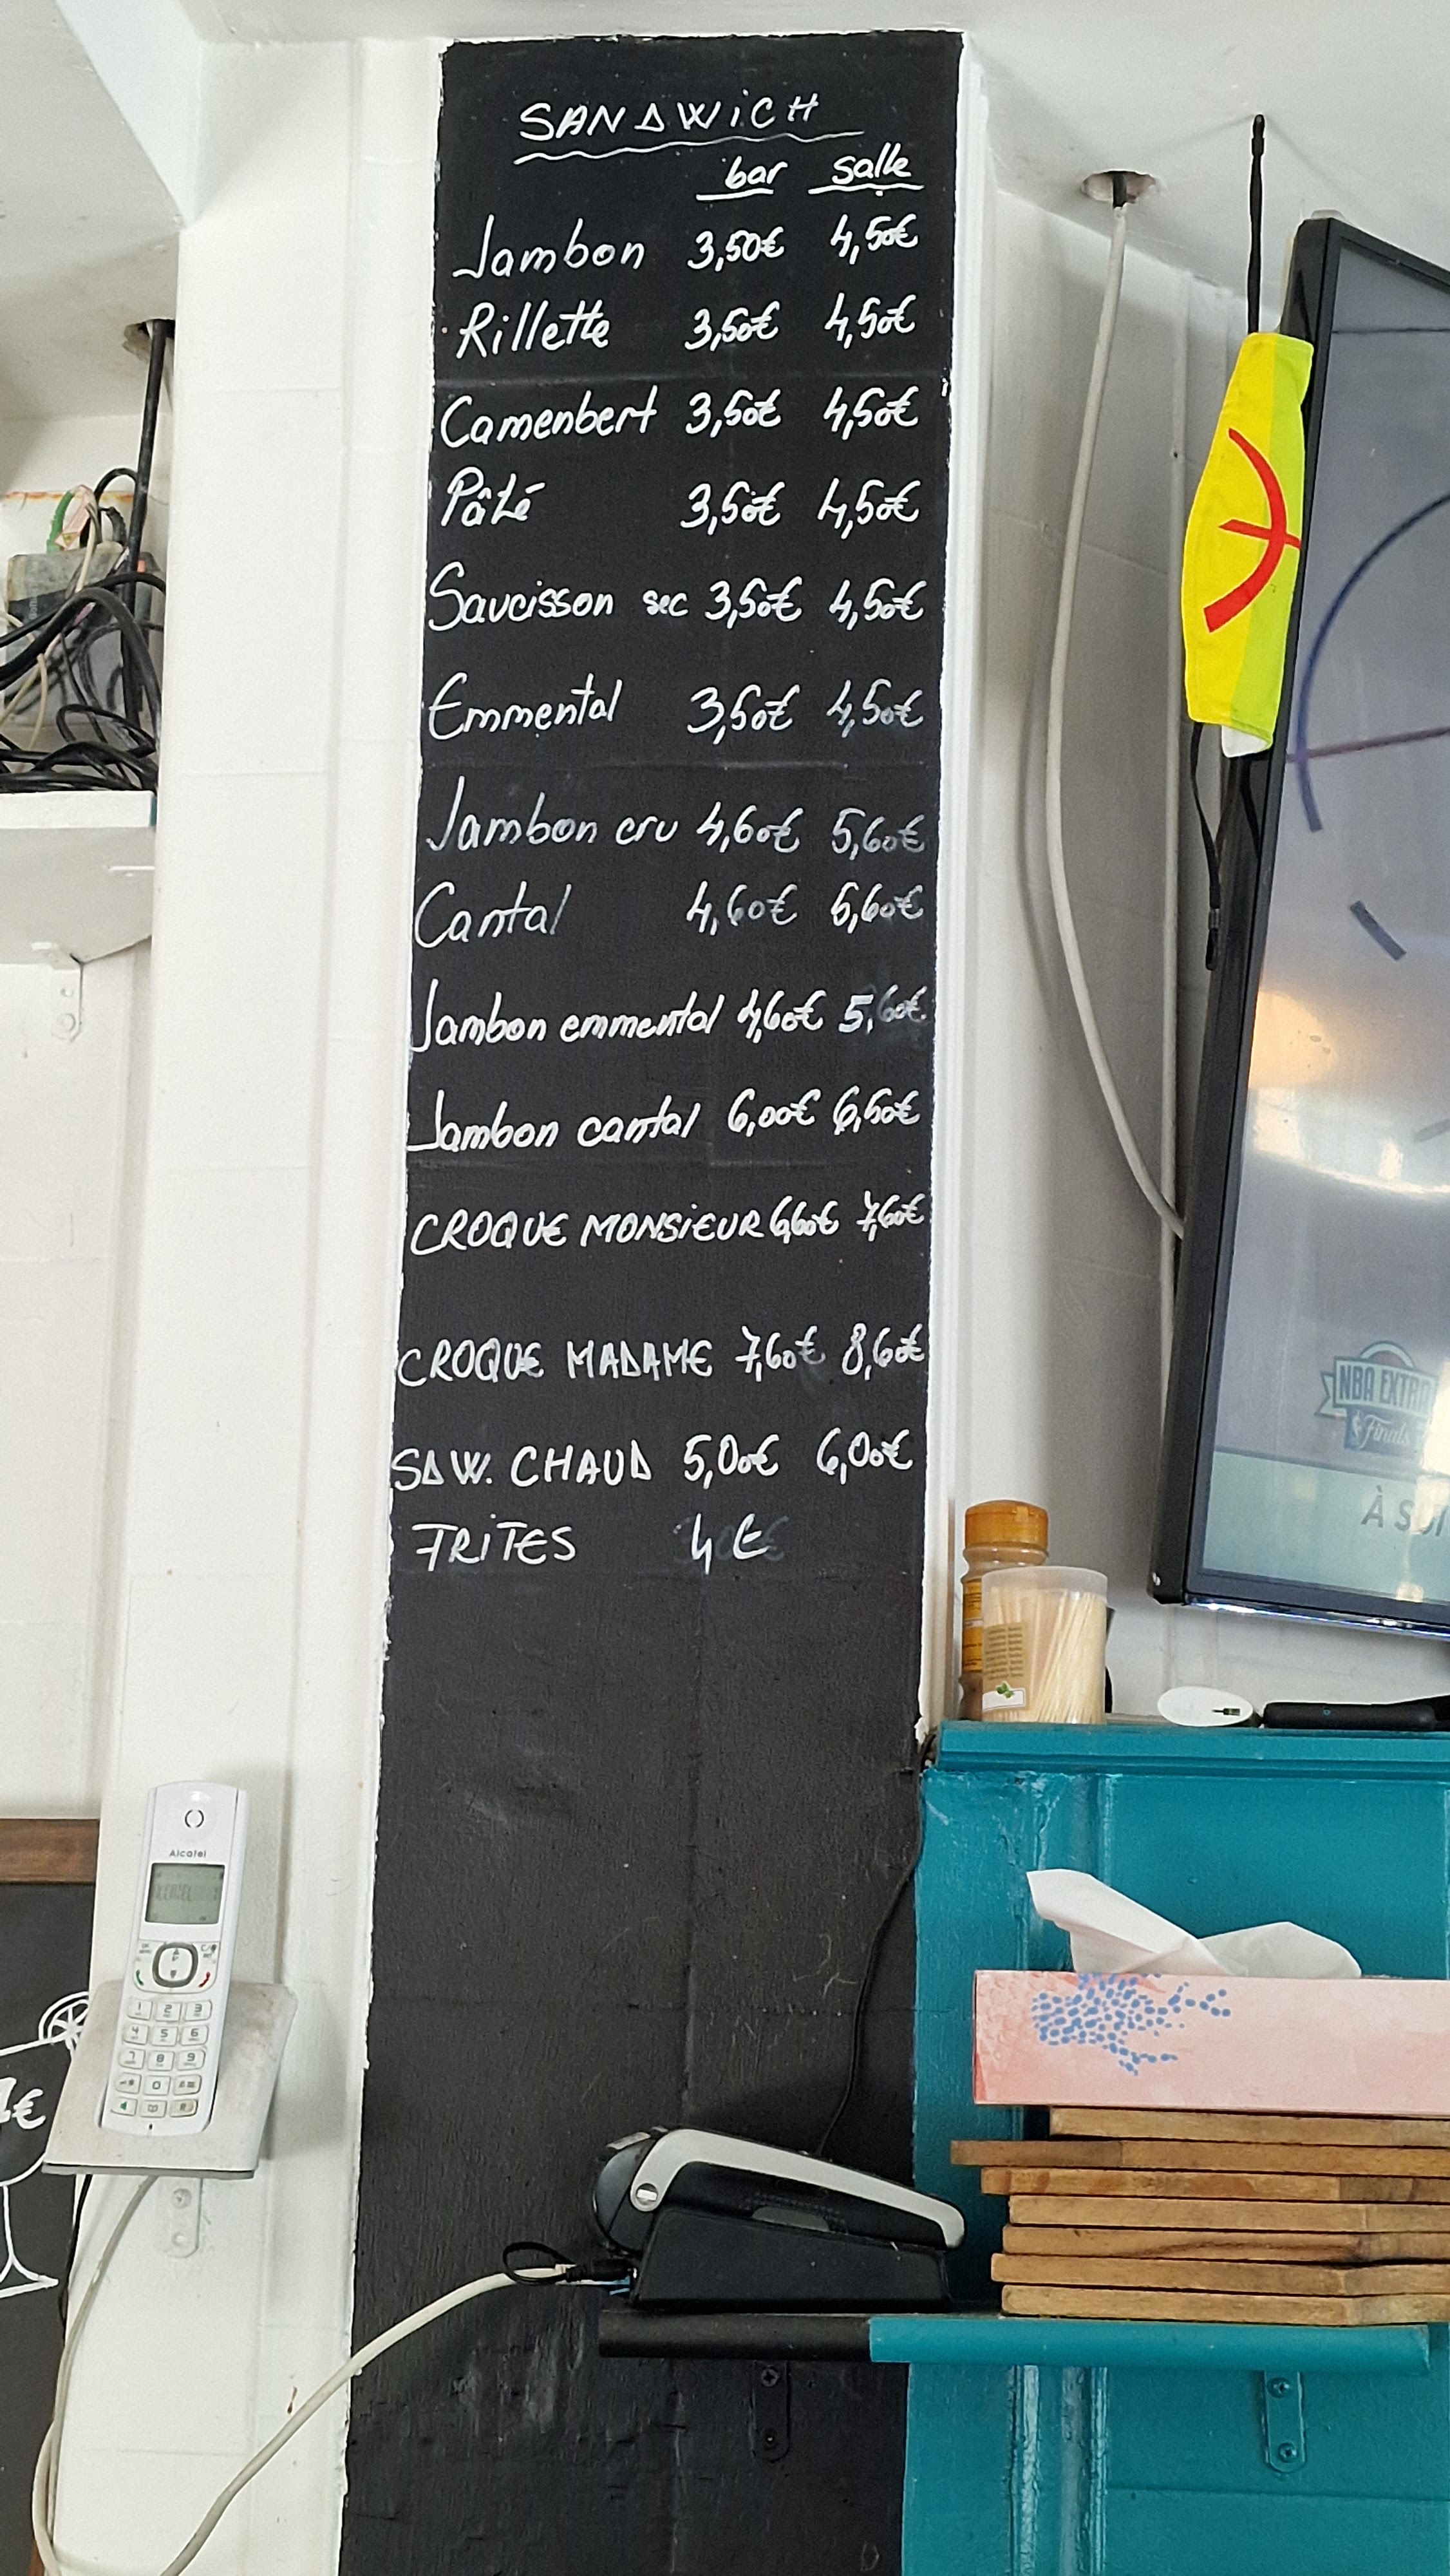 SANDWiCH
bar salle
Jambon 3,50€ 4,50€
Rillette 3,50€ 4,50€
Camenbert 3,50€ 4,50€
Pâté 3,50€ 4,50€
Saucisson sec 3,50€ 4,50€
Emmental 3,50€ 4,50€
Jambon cru 4,60€ 5,60€
Cantal 4,60€ 5,60€
Jambon emmental 4,60€ 5,60€
Jambon cantal 6,00€ 6,50€
CROQUE MONSiEUR 6,60€ 7,60€
CROQUE MADAME 7,60€ 8,60€
SDW. CHAUD 5,00€ 6,00€
FRiTES 4 €
NBA EXTRA
Finals
À SUI
Alcatel
1 2 3
4 5 6
7 8 9
0
€